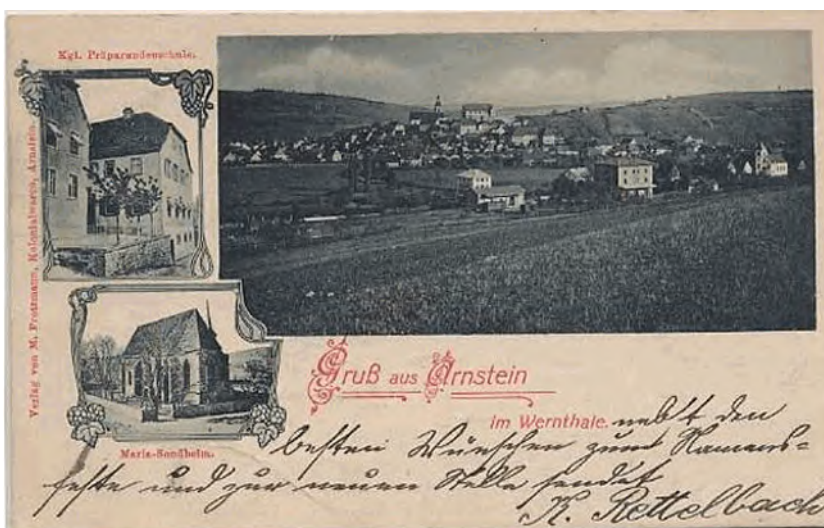 Kgl. Präparandenschule.
Verlag von M. Protzmann, Kolonialwaren, Arnstein.
Maria-Sondheim.
Gruß aus Arnstein
im Wernthale.
nebst den
besten Wünschen zum Namens-
feste und zur neuen Stelle sendet
K. Rettelbach